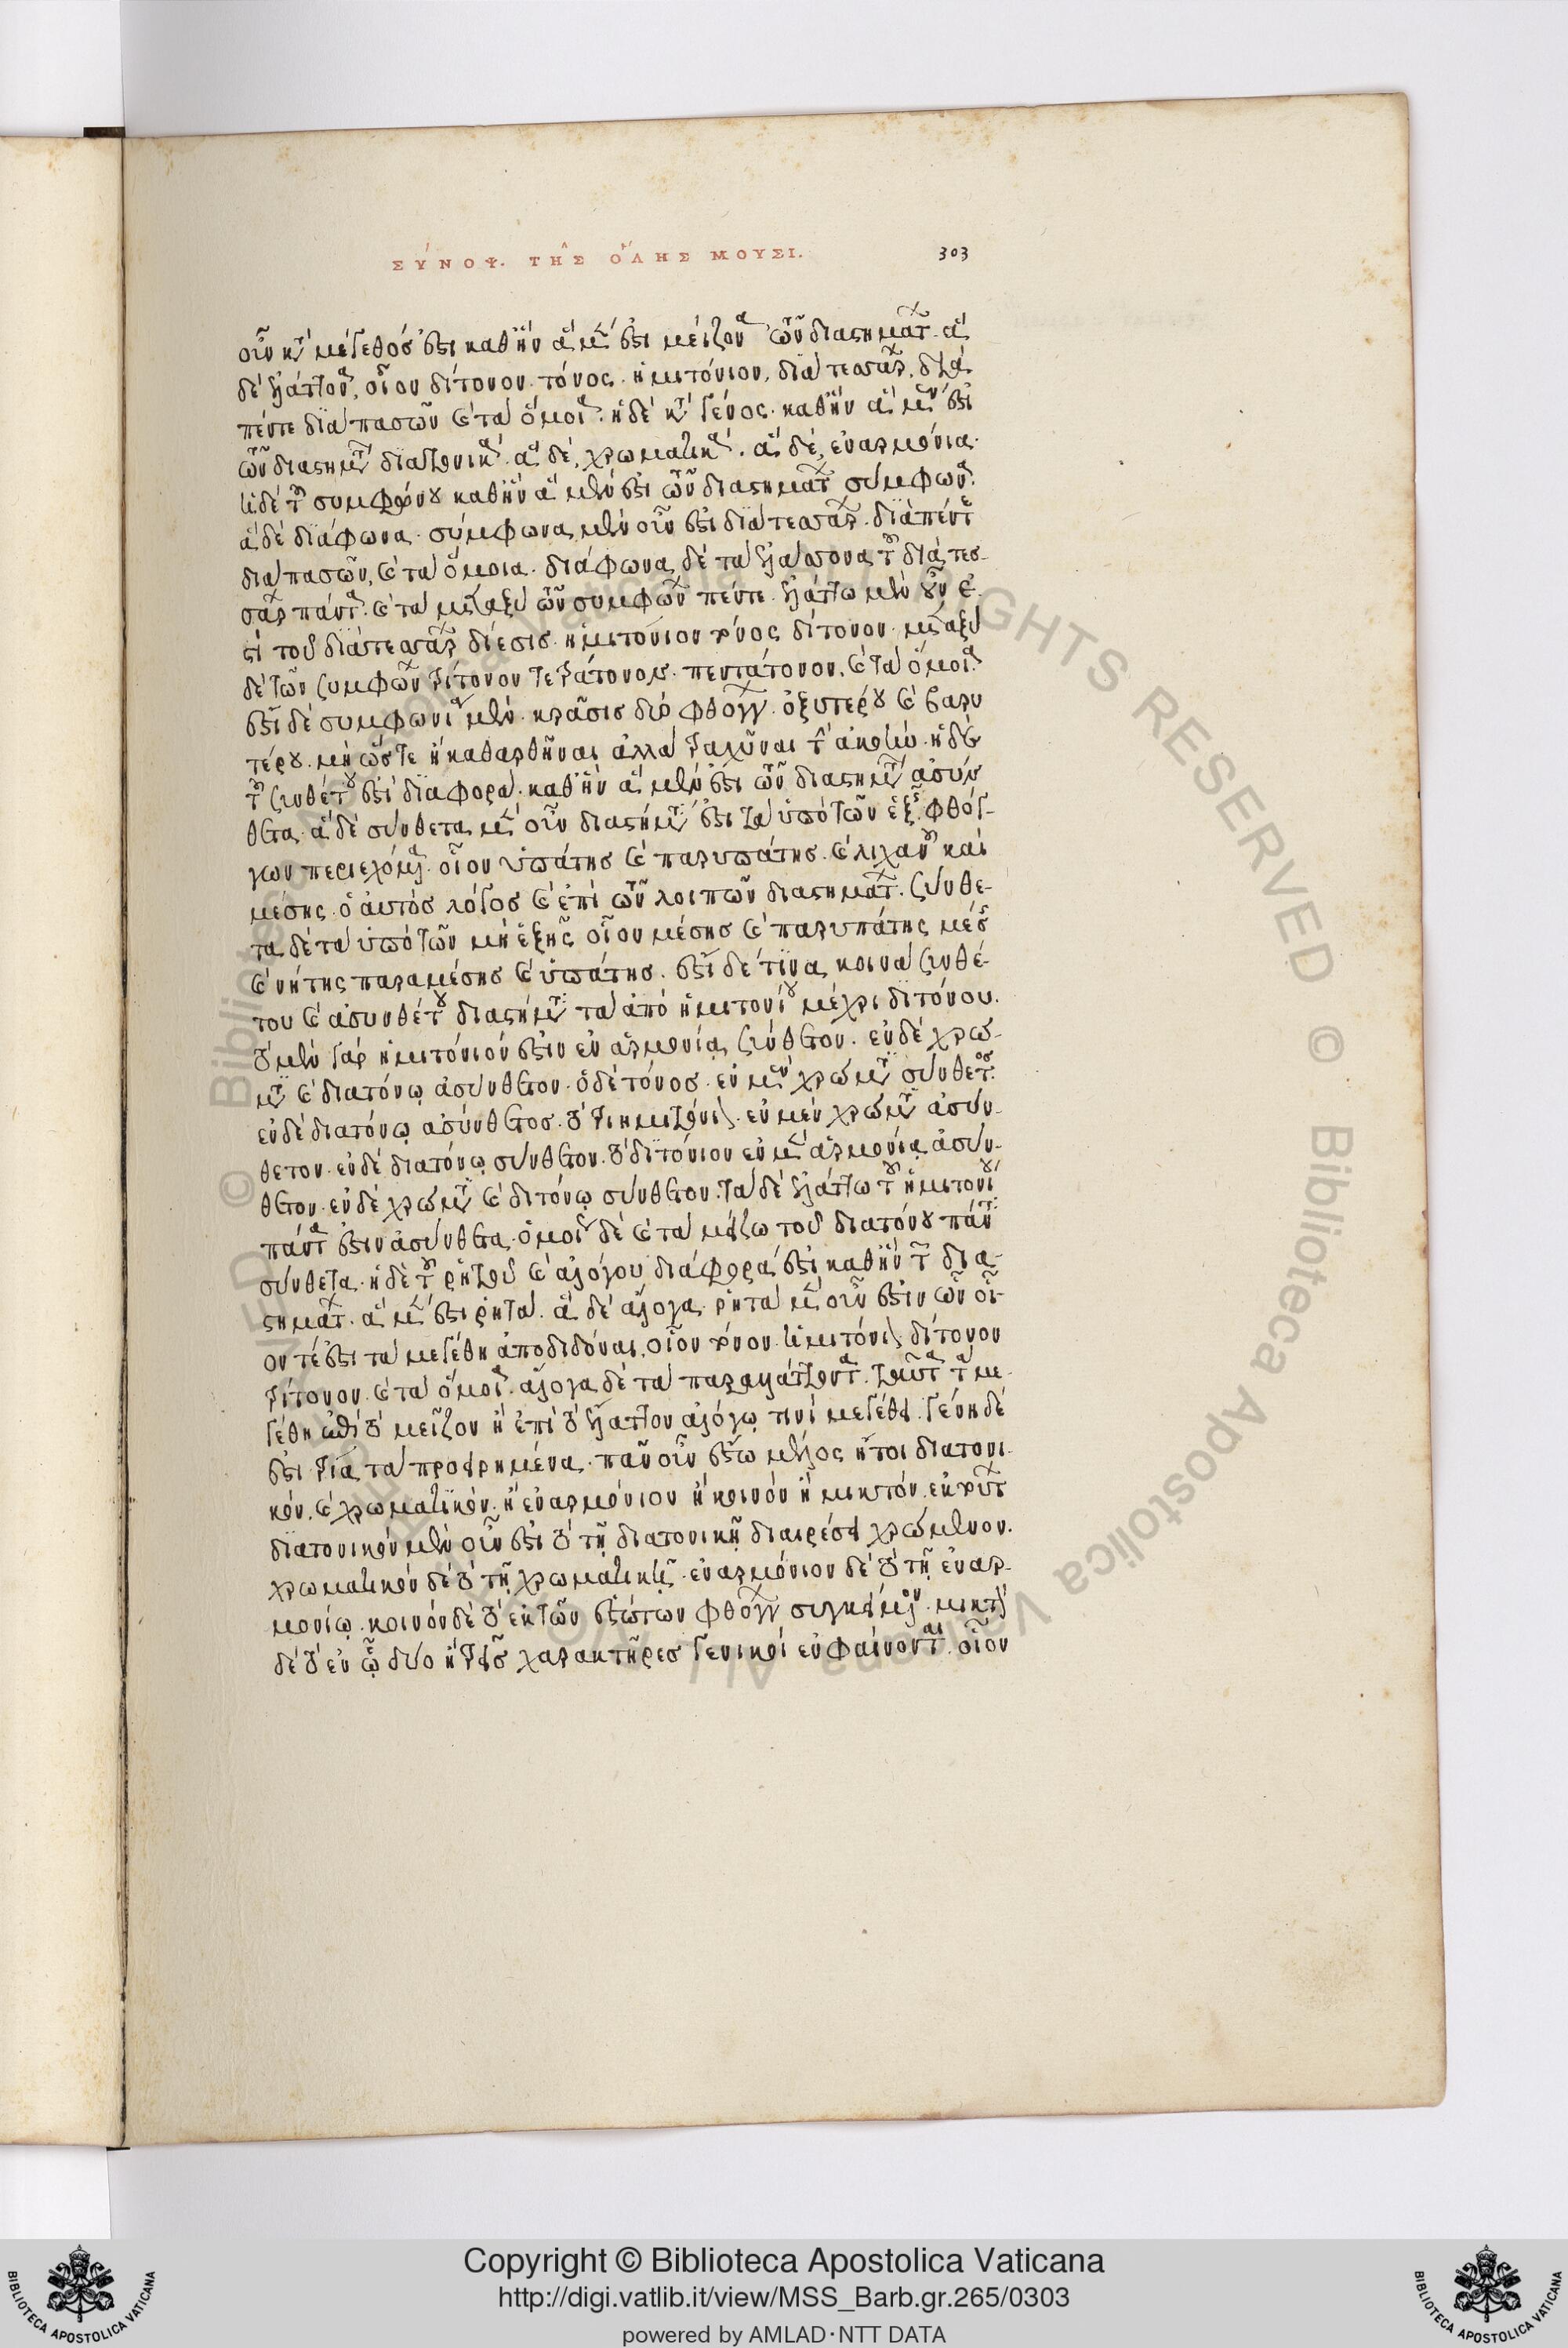 ΣΎΝΟΨ. ΤΗ͂Σ ὍΛΗΣ ΜΟΥΣΙ. 303
οὖν κατὰ μέγεθός ἐστι καθ' ἣν ἃ μέν ἐστι μείζονα τῶν διαστημάτων. ἃ
δὲ ἐλάττονα, οἷον δίτονον. τόνος. ἡμιτόνιον, διὰ τεσσάρων, διὰ
πέντε διὰ πασῶν καὶ τὰ ὅμοια. ἡ δὲ κατὰ γένος. καθ' ἣν ἃ μέν ἐστι
τῶν διαστημάτων διατονικά. ἃ δὲ, χρωματικά. ἃ δὲ, ἐναρμόνια.
ἡ δὲ τοῦ συμφώνου καθ' ἣν ἃ μὲν ἐστι τῶν διαστημάτων σύμφωνα.
ἃ δὲ διάφωνα. σύμφωνα μὲν οὖν ἐστὶ διὰ τεσσάρων. διὰ πέντε
διὰ πασῶν, καὶ τὰ ὅμοια. διάφωνα δὲ τὰ ἐλάσσονα τοῦ διὰ τεσ-
σάρων πάντα. καὶ τὰ μεταξὺ τῶν συμφώνων πάντα. ἐλάττω μὲν οὖν ἐ-
στὶ τοῦ διὰ τεσσάρων δίεσις. ἡμιτόνιον τόνος δίτονον. μεταξὺ
δὲ τῶν συμφώνων τρίτονον τετράτονον. πεντάτονον. καὶ τὰ ὅμοια
ἐστὶ δὲ συμφωνία μὲν. κρᾶσις δύο φθόγγων. ὀξυτέρου καὶ βαρυ
τέρου. μὴ ὥστε ἢ καθαρθῆναι ἀλλὰ τραχῦναι τὴν ἀκοήν. ἡ δὲ
τοῦ συνθέτου ἐστὶ διαφορά. καθ' ἣν ἃ μὲν ἐστι τῶν διαστημάτων ἀσύν
θετα. ἃ δὲ σύνθετα μὲν οὖν διαστήματα ἐστι τὰ ὑπὸ τῶν ἑξῆς φθόγ-
γων περιεχόμενα. οἷον ὑπάτης καὶ παρυπάτης. καὶ λιχανοῦ καὶ
μέσης. ὁ αὐτὸς λόγος καὶ ἐπὶ τῶν λοιπῶν διαστημάτων. σύνθε-
τα δὲ τὰ ὑπὸ τῶν μὴ ἑξῆς οἷον μέσης καὶ παρυπάτης μέσης
καὶ νήτης παραμέσης καὶ ὑπάτης. ἐστὶ δέ τινα κοινὰ συνθέ-
του καὶ ἀσυνθέτου διαστήματα τὰ ἀπὸ ἡμιτονίου μέχρι διτόνου.
τὸ μὲν γὰρ ἡμιτόνιόν ἐστιν ἐν ἁρμονίᾳ σύνθετον. ἐν δὲ χρώ-
ματι καὶ διατόνῳ ἀσύνθετον. ὁ δὲ τόνος. ἐν μὲν χρώματι σύνθετος.
ἐν δὲ διατόνῳ ἀσύνθετος. τὸ τριημιτόνιον. ἐν μὲν χρώματι ἀσύν-
θετον. ἐν δὲ διατόνῳ σύνθετον. τὸ διτόνιον ἐν μὲν ἁρμονίᾳ ἀσύν-
θετον. ἐν δὲ χρώματι καὶ διτόνῳ σύνθετον. τὰ δὲ ἐλάττω τοῦ ἡμιτονίου
πάντα ἐστὶν ἀσύνθετα. ὁμοίως δὲ καὶ τὰ μείζω τοῦ διατόνου πάντα
σύνθετα. ἡ δὲ τοῦ ῥητοῦ καὶ ἀλόγου διάφορά ἐστι καθ' ἣν τῶν δια-
στημάτων. ἃ μέν ἐστι ῥητά. ἃ δὲ ἄλογα. ῥητὰ μὲν οὖν ἐστὶν ὧν οἷ-
ον τέ ἐστι τὰ μεγέθη ἀποδιδόναι, οἷον τόνον. ἡμιτόνιον, δίτονον
τρίτονον. καὶ τὰ ὅμοια. ἄλογα δὲ τὰ παραλλάττοντα ταῦτα τὰ με-
γέθη ἐπὶ τὸ μεῖζον ἢ ἐπὶ τὸ ἔλαττον ἀλόγῳ τινὶ μεγέθει. γένη δέ
ἐστι τρία τὰ προειρημένα. πᾶν οὖν ἔστω μέλος ἤτοι διατονι-
κὸν, καὶ χρωματικὸν. ἢ ἐναρμόνιον ἢ κοινὸν ἢ μικτὸν. ἐκ τούτων
διατονικὸν μὲν οὖν ἐστι τὸ τῇ διατονικῇ διαιρέσει χρώμενον.
χρωματικὸν δὲ τὸ τῇ χρωματικῇ. ἐναρμόνιον δὲ τὸ τῇ ἐναρ-
μονίῳ. κοινὸν δὲ τὸ ἐκ τῶν ἑστώτων φθόγγων συγκείμενον. μικτὸν
δὲ τὸ ἐν ᾧ δύο ἢ τρεῖς χαρακτῆρες γενικοὶ ἐμφαίνονται. οἷον
Copyright © Biblioteca Apostolica Vaticana
http://digi.vatlib.it/view/MSS_Barb.gr.265/0303
powered by AMLAD·NTT DATA
BIBLIOTECA APOSTOLICA VATICANA
BIBLIOTECA APOSTOLICA VATICANA